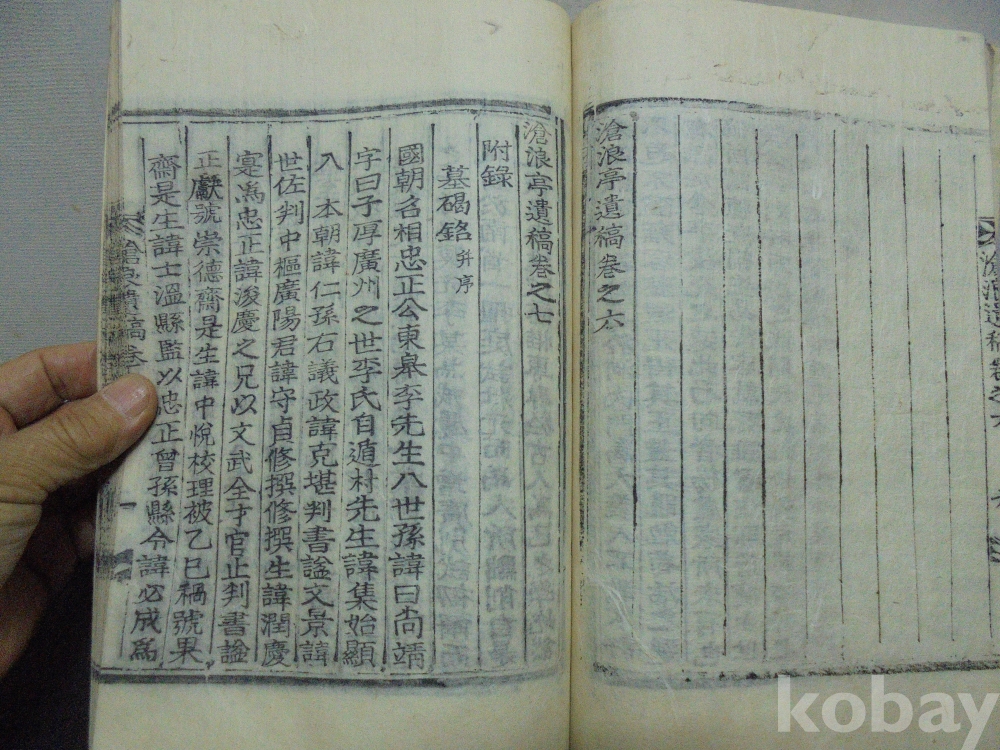 滄浪亭遺稿卷之六
滄浪亭遺稿卷之七
附錄
墓碣銘 并序
國朝名相忠正公東皐李先生八世孫諱曰尙靖
字曰子厚廣州之世李氏自遁村先生諱集始顯
入 本朝諱仁孫右議政諱克堪判書謚文景諱
世佐判中樞廣陽君諱守貞修撰修撰生諱潤慶
寔爲忠正諱浚慶之兄以文武全才官止判書謚
正獻號崇德齋是生諱中悅校理被乙巳禍號果
齋是生諱士溫縣監以忠正曾孫縣令諱必成爲
kobay